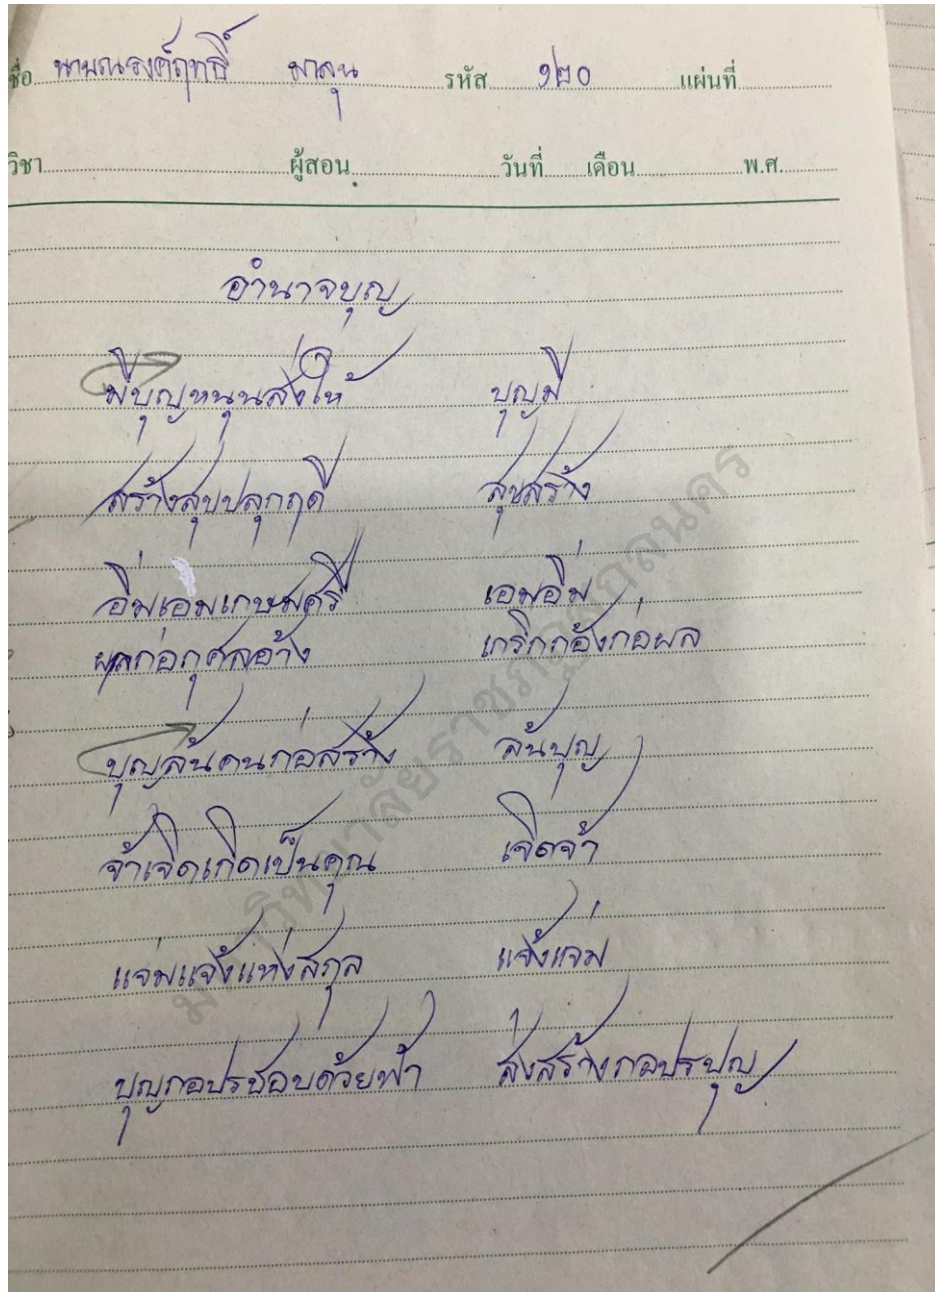 ชื่อ นายณรงค์ฤทธิ์ มาลุน รหัส ๑๒๐ แผ่นที่
วิชา ผู้สอน วันที่ เดือน พ.ศ.
อำนาจบุญ
มีบุญหนุนส่งให้ บุญมี
สร้างสุขปลุกฤดี สุขสร้าง
อิ่มเอมเกษมศรี เอมอิ่ม
ผลก่อกุศลอ้าง เกริกก้องก่อผล
บุญล้นคนก่อสร้าง ล้นบุญ
จ้าเจิดเกิดเป็นคุณ เจิดจ้า
แจ่มแจ้งแห่งสกุล แจ้งแจ่ม
บุญกอปรชอบด้วยฟ้า ส่งสร้างกอปรบุญ